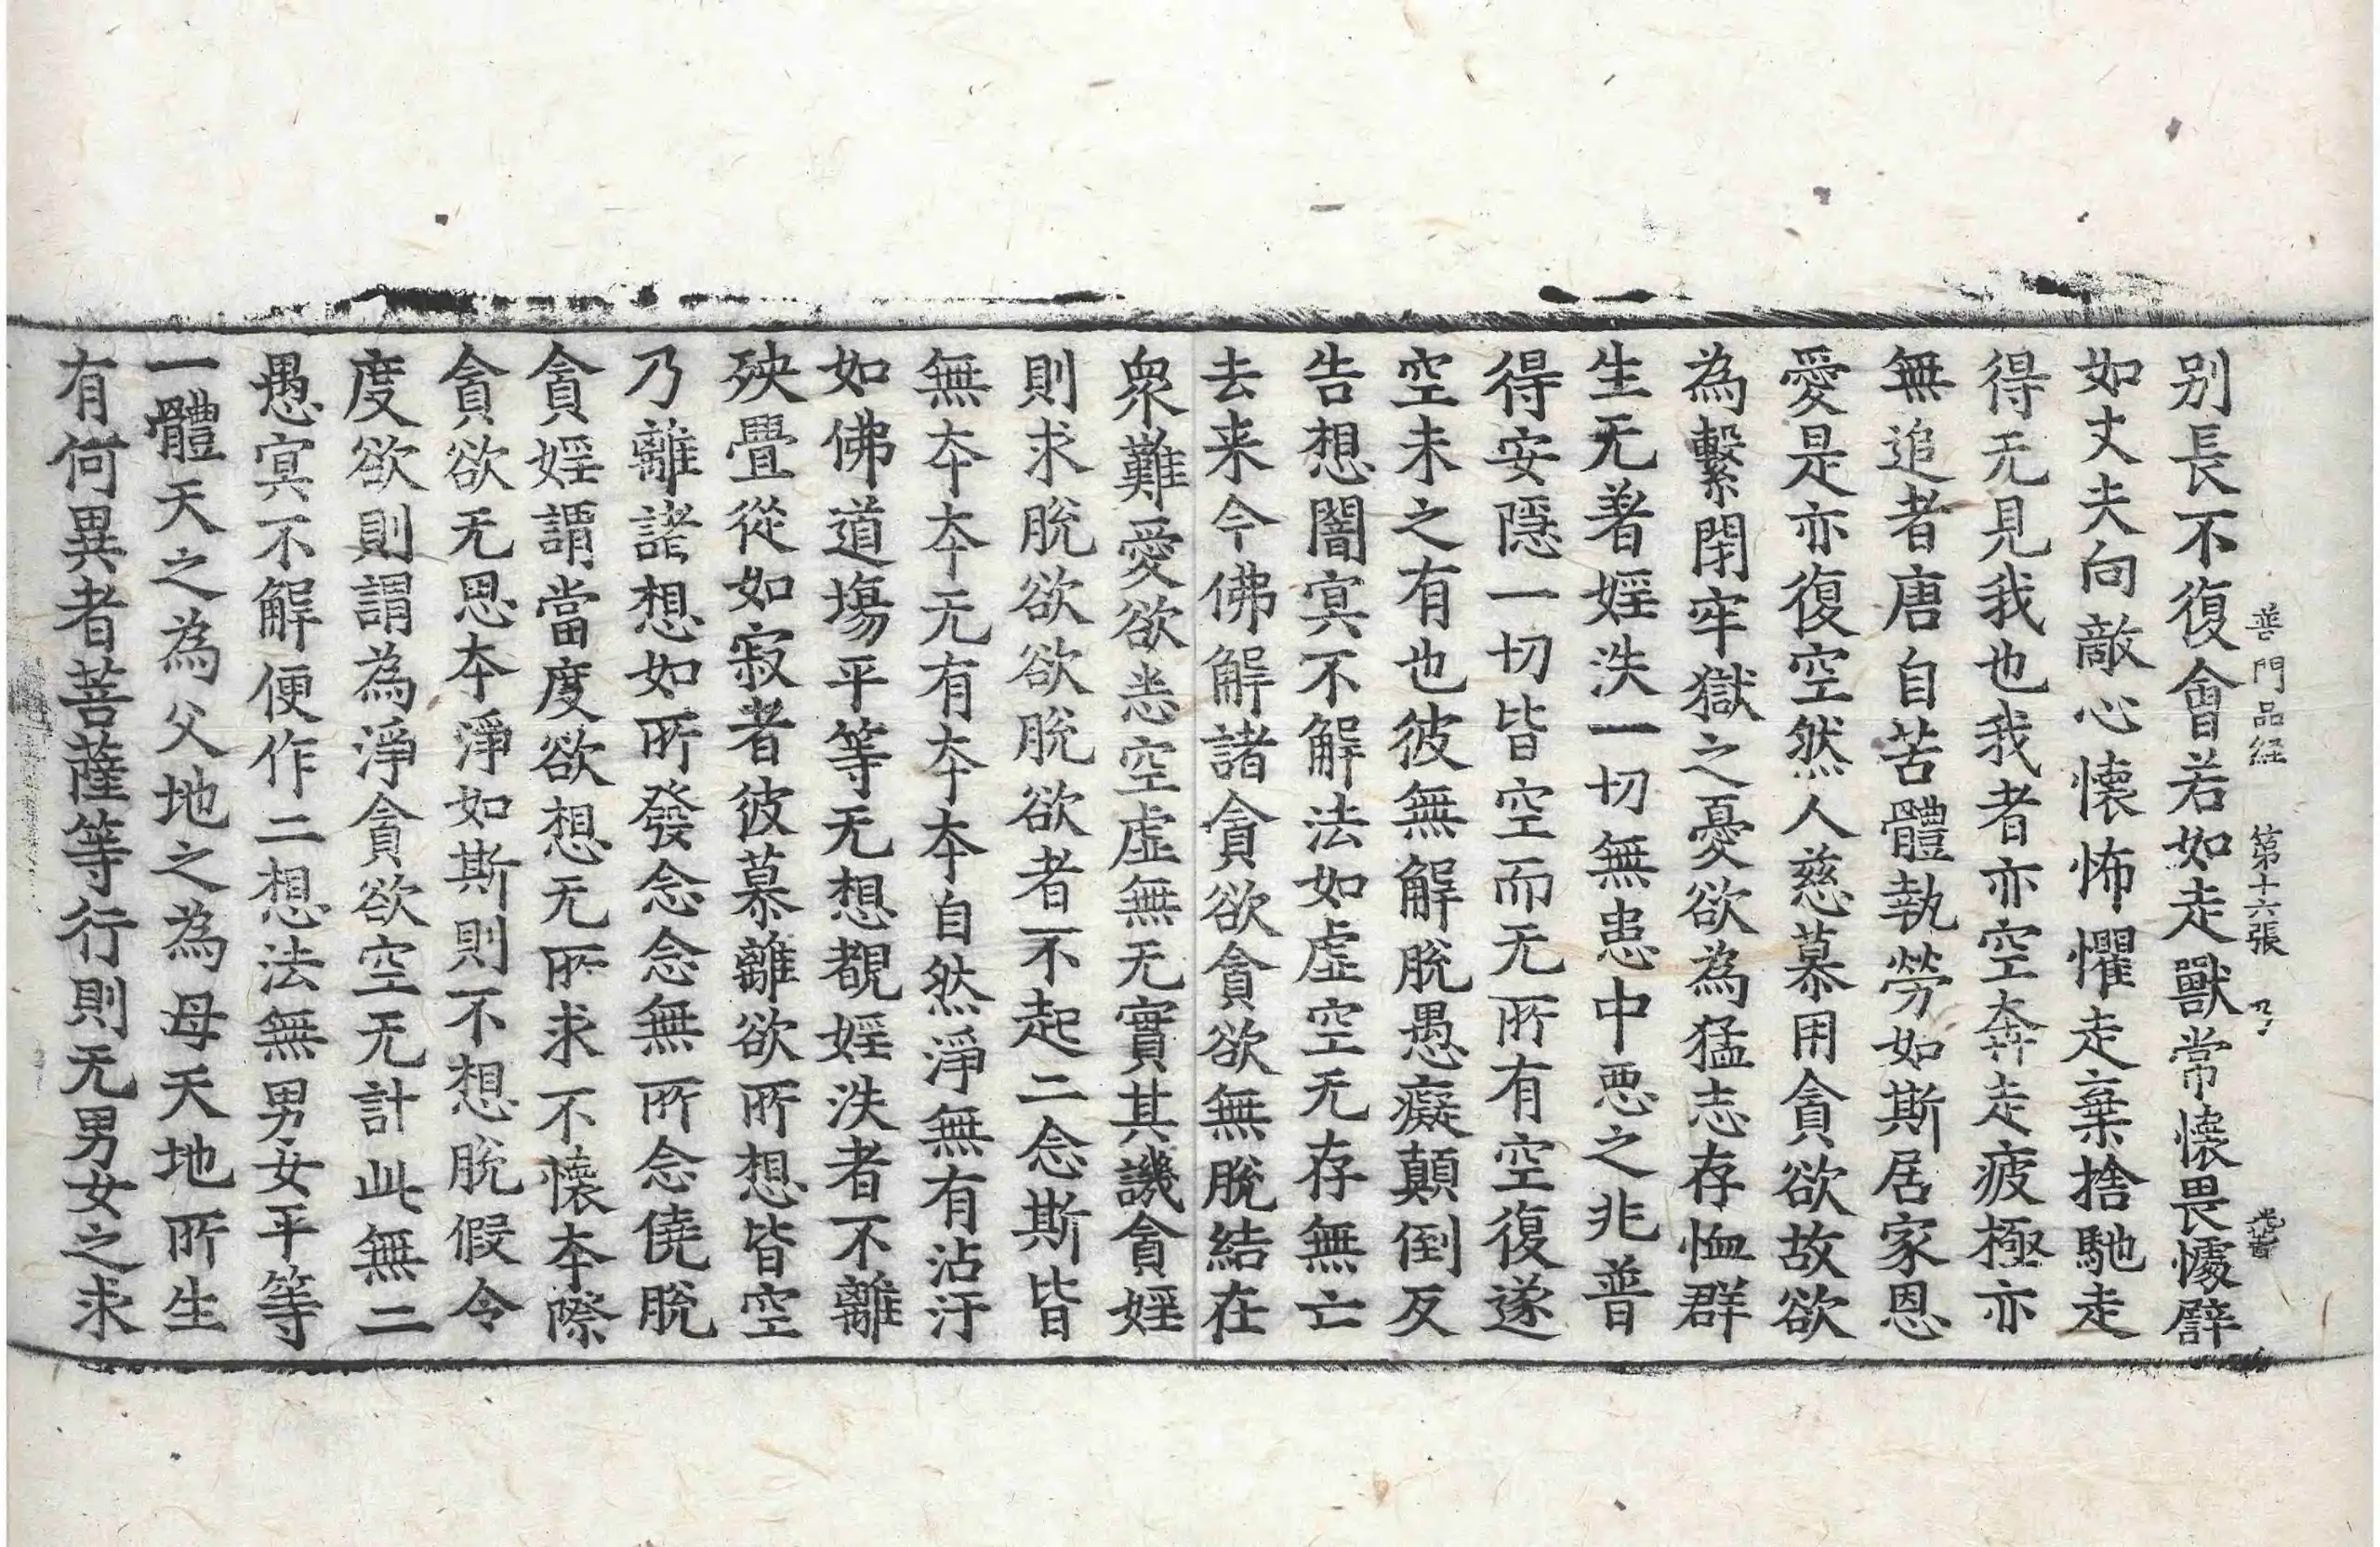 普門品経 第十六張 乃
别長不復會若如走獸常懷畏懅辟
如丈夫向敵心懷怖懼走棄捨馳走
得无見我也我者亦空奔走疲極亦
無追者唐自苦體執勞如斯居家恩
愛是亦復空然人慈慕用貪欲故欲
為繫閉牢獄之憂欲為猛志存恤群
生无著婬泆一切無恚中恶之兆普
得安隱一切皆空而无所有空復遂
空未之有也彼無解脫愚癡顛倒反
告想闇冥不解法如虛空无存無亡
去来今佛解諸貪欲貪欲無脫結在
衆難愛欲恚空虛無无實其譏貪婬
則求脫欲欲脫欲者不起二念斯皆
無夲夲无有夲夲自然淨無有沾汙
如佛道場平等无想覩婬泆者不離
殃疊從如寂者彼慕離欲所想皆空
乃離諸想如所發念念無所念僥脫
貪婬謂當度欲想无所求不懷夲際
貪欲无思夲淨如斯則不想脫假令
度欲則謂為淨貪欲空无計此無二
愚冥不解便作二想法無男女平等
一體天之為父地之為母天地所生
有何異者菩薩等行則无男女之求